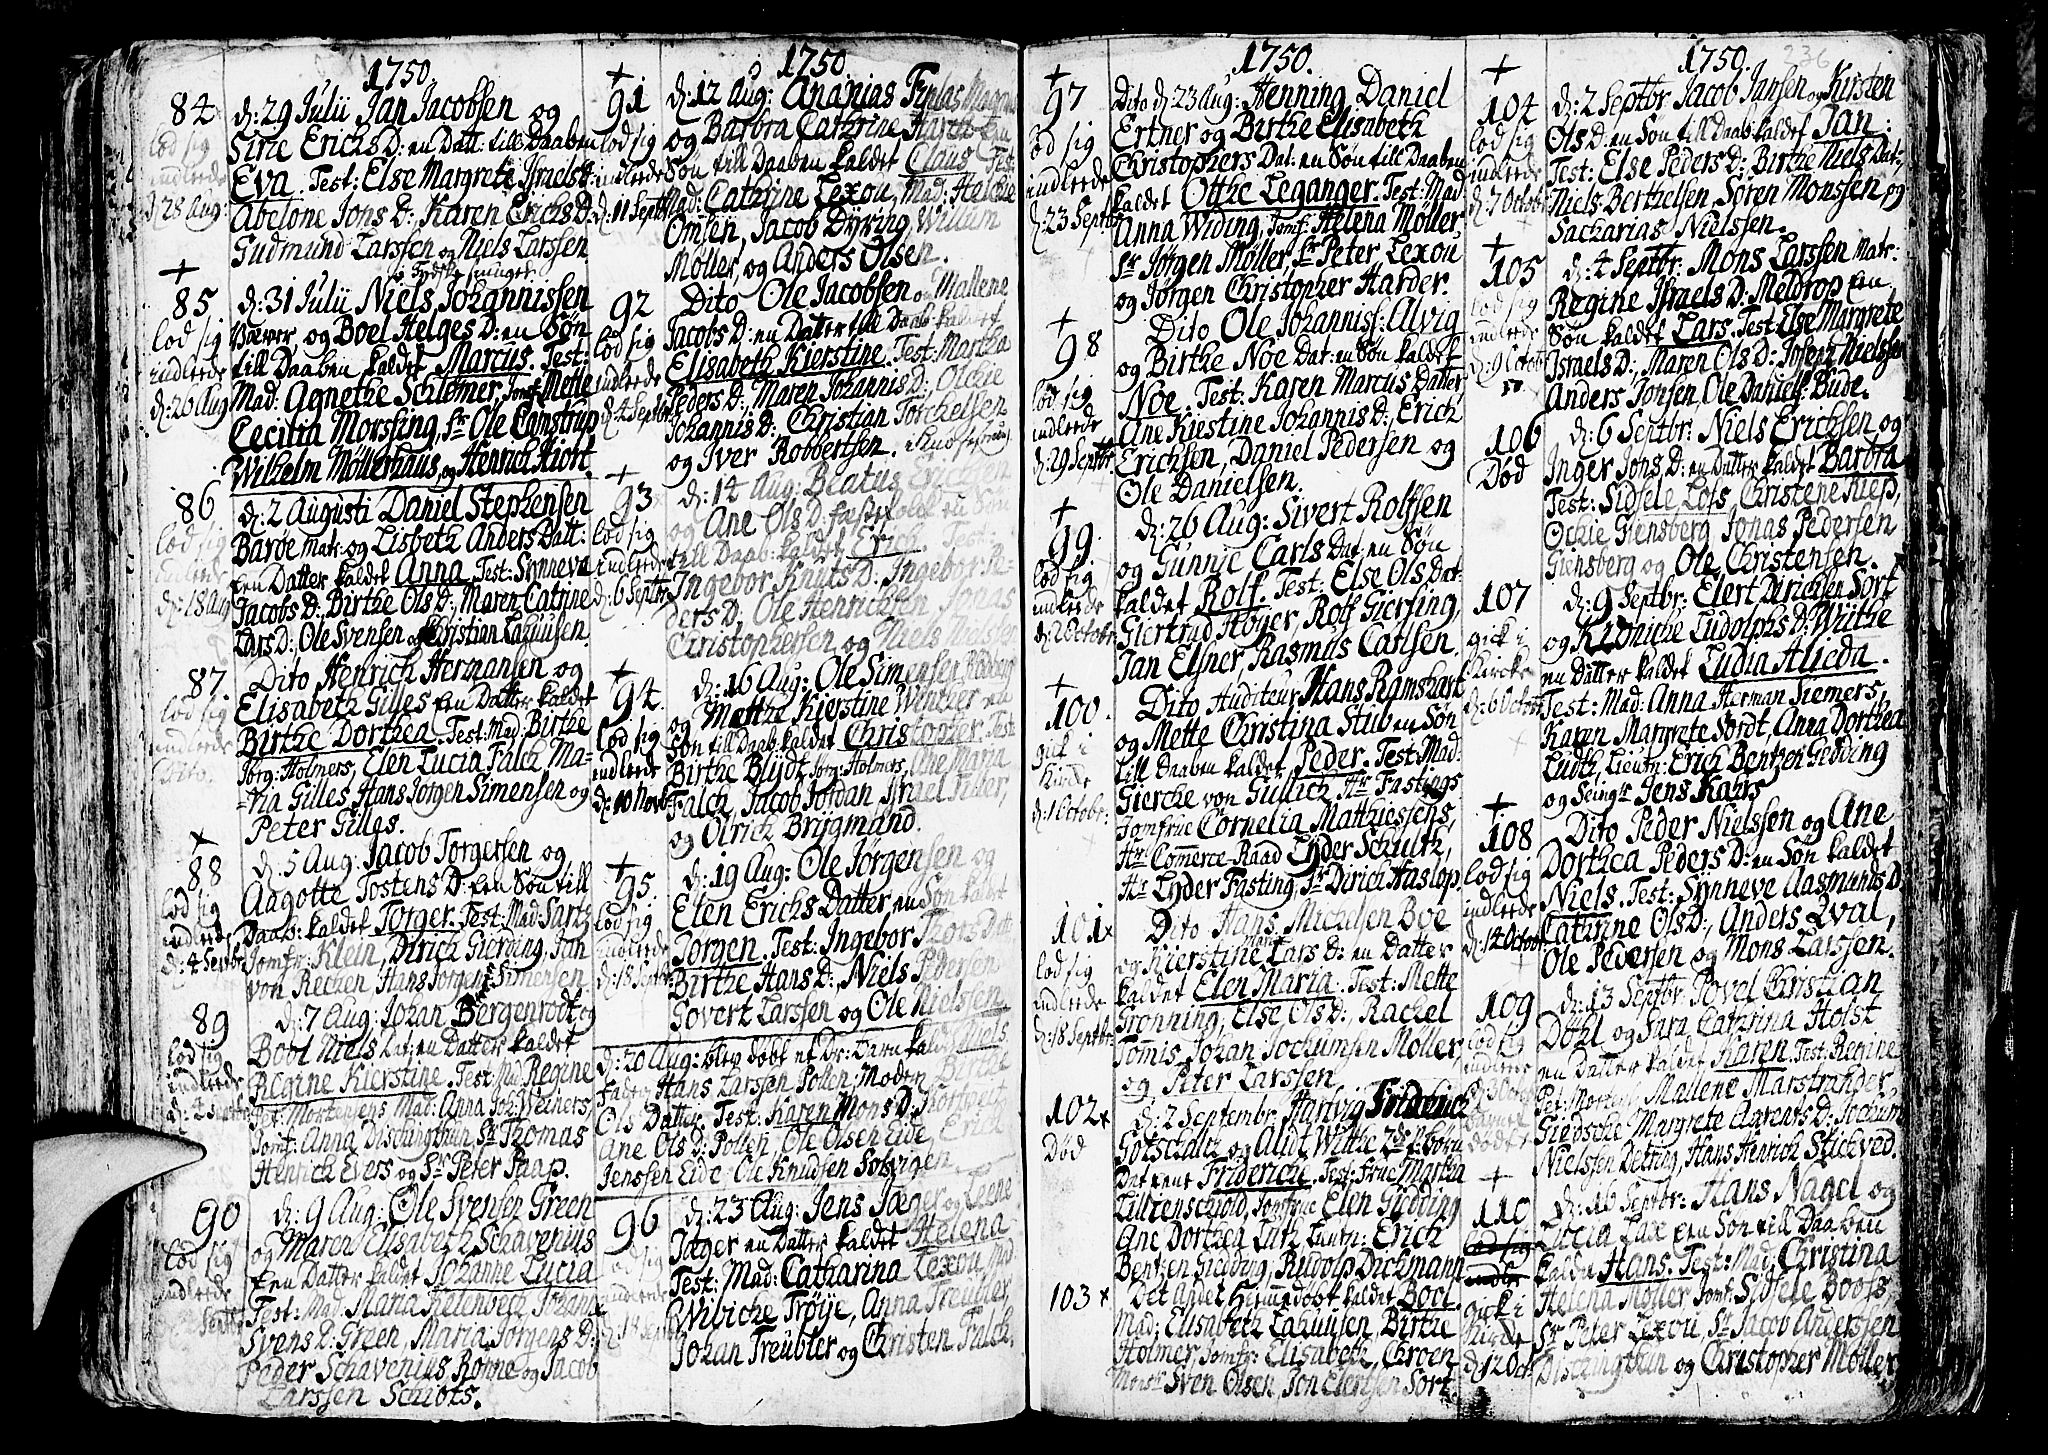 1750.
84
lod sig
indlede
d: 28 Aug:
d: 29 Julii Jan Jacobsen og
Sirie Erichs D: en Datt: till Daaben
Eva. Test: Else Margrete Israels D:
Abelone Jons D: Karen Erichs D:
Gudmund Larssen og Niels Larssen
+
85
lod sig
indlede
d: 20 Aug
d: 31 Julii Niels Johannissen
Væver, og Boel Helges D: en Søn
till Daaben kaldet Marcus. Test:
Mad: Agnethe Schlømer, Jomf: Mette
Cecilia Morsing, Sr Ole Camstrup
Wilhelm Möllerhaus, og Henrich Hiort.
86
lod sig
indlede
d: 18 Aug
d: 2 Augusti Daniel Stephensen
Barbe Matr: og Lisbeth Anders Datt:
Een Datter kaldet Anna. Test: Synneve
Jacobs D: Birthe Ols D: Maren Catrine
Lars D: Ole Svensen og Christian Lauusen.
87.
lod sig
indlede
Dito.
Dito Henrich Hermansen og
Elisabeth Gilles Een Datter kaldet
Birthe Dorthea. Test: Mad: Birthe
Jørg: Holmers, Elen Lucia Falch Ma-
ria Gilles, Hans Jørgen Simensen og
Peter Gilles.
+
88
lod sig
indlede
d: 4 Septbr
d: 5 Aug: Jacob Torgersen og
Aagotte Tostens D: Een Søn till
Daab: kaldet Torger. Test: Mad: Sartz
Jomfr: Klein, Dirich Giersing, Jan
von Recken Hans Jørgen Simensen
89
lod sig
indlede
d: 7 Aug: Johan Bergenrodt og
Boel Niels Dat: en Datter kaldet
Regine Kierstine. Test: Mad Regine
Pet: Mortensens Mad: Anna Joh: Weiners,
Jomf: Anna Dischingthun Sr Thomas
Henrich Evers og Sr Peter Paap.
90
lod sig
indlede
d: 9 Aug: Ole Svensen Green
og Maren Elisabeth Schavenius
Een Datter kaldet Johanne Lucia
Test: Mad: Maria Johanne
Svens D: Green, Maria Jørgens D:
Peder Schavenius Rønne og Jacob
Larssen Schiøts.
1750
+
91
lod sig
indlede
d: 11 Septbr
d: 12 Aug: Ananias
og Barbra Cathrine en
Søn till Daaben kaldet Claus Test:
Mad: Cathrine Lexou, Mad:
Omsen, Jacob Dyring, Willum
Möller, og Anders Olsen.
92
lod sig
indlede
d: 4 Septbr
Dito Ole Jacobsen og Mallene
Jacobs D: en Datter till Daab kaldet
Elisabeth Kierstine. Test: Martha
Peders D:, Maren Johannis D:, Olchie
Johannis D:, Christian Torchelsen
og Iver Robbertsen.
+
93
lod sig
indlede
d: 6 Septbr
d: 14 Aug: Beatus Erichsen
og Ane Ols D: en Søn
till Daab: kaldet Erich. Test:
Ingebor Knuts D: Ingebor Pe-
ders D:, Ole Henrichsen Jonas
Christophersen og Niels
+
94.
lod sig
indlede
d: 10 Novb
d: 16 Aug: Ole Simensen
og Metthe Kierstine Wintzer en
søn till Daab: kaldet Christopher. Test:
Birthe Blydt, Jørg: Holmers, Ane Maria
Falch, Jacob Jordan Israel
og Olrich Brygmand.
+
95.
lod sig
indlede
d: 18 Septbr
d: 19 Aug: Ole Jørgensen og
Elen Erichs Datter, en Søn kaldet
Jørgen. Test: Ingebor Thors Datt
Birthe Hans D:, Niels Pedersen
Govert Larssen og Ole Nielssen
d: 20 Aug: blev døbt af Dr: Barn kald: Niels
Fader Hans Larssen Pollen, Moder Birthe
Ols Datter. Test: Karen Mons D:
Ane Ols D: Pollen, Ole Olsen Eide, Erich
Jenssen Eide Ole Knudsen Solvigen
96
lod sig
indlede
d: 23 Aug: Jens Jæger og Lene
Jæger en Datter kaldet Helena
Test: Mad: Catharina Lexou Mad
Wibiche Trøye, Anna Treubler,
Johan Treubler og Christen Falch.
1750.
+
97
lod sig
indlede
d: 23 Septbr
Dito d: 23 Aug: Henning Daniel
Ertner og Birthe Elisabeth
Christophers Dat: en Søn till Daaben
kaldet Otthe Leganger. Test: Mad
Anna Widing, Jomf: Helena Møller,
Sr Jørgen Møller, Sr Peter Lexou
og Jørgen Christopher Harder.
+
98
lod sig
indlede
d: 29 Septbr
Dito Ole Johannisf: Alvig
og Birthe Noe Dat: en Søn kaldet
Noe. Test: Karen Marcus Datter,
Ane Kiestine Johannis D:, Erich
Erichsen, Daniel Pedersen og
Ole Danielsen.
+
99.
lod sig
indlede
d: 2 Octobr
d: 26 Aug: Sivert Rolfsen
og Gunnie Carls Dat: en Søn
kaldet Rolf. Test: Else Ols Dat:
Giertrud Høyer, Rolf Giersing,
Jan Elsner, Rasmus Carlsen.
+
100.
gick i
Kirche
d: 1 Octobr:
Dito Auditeur Hans Ramshart
og Mette Christina Stub en Søn
till Daaben kaldet Peder. Test: Mad:
Giercke von Gullich Hr Fastings
Jomfrue Cornelia Mathiessens,
Hr: Commerce-Raad Lyder Schultz,
Hr Lyder Fasting, Sr Dirich Haslop.
101 x
lod sig
indlede
d: 18 Septbr:
Dito Hans Michelsen Boe
og Kierstine Lars D: en Datter
kaldet Elen Maria. Test: Mette
Grønning, Else Ols D:, Rachel
Tomis, Johan Jochumsen Møller,
og Peter Larssen
102 x
Død
d: 2 Septembr: Hartvig Friderich
Gotschalk og Alidt Withe 2de
Det eene Friderich. Test: Frue Martha
Lillienschiold, Jomfrue Elen Gidding
Ane Dorthea Lutk Lieutn: Erich
Bentzen Giedding, Rudolf Dickmann
103 x
Det andet Hiemdøbt kaldet Boel.
Mad: Elisabeth Lauusen, Birthe
Holmer Jomfr: Elisabeth Chroen
Monsr Sven Olsen, Jon Elertsen Sort.
1750.
236
+
104
lod sig
indlede
d: 7 Octobr
d: 2 Septbr Jacob Jansen og Kirsten
Ols D: en Søn till Daab: kaldet Jan:
Test: Else Peders D: Birthe Niels Dat:,
Niels Berthelsen, Søren Monssen og
Sacharias Nielssen.
+
105
lod sig
indlede
d: 9 Octobr
d: 4 Septbr: Mons Larssen Matr:
Regine Israels D: Meldrop Een
Søn kaldet Lars. Test: Else Margrete
Israels D:, Maren Ols D: Johan Nielssen
Anders Jonsen, Ole Daniels: Bude.
106
Død
d: 6 Septbr: Niels Erichsen og
Inger Jons D: en Datter kaldet Barbra
Test: Sidsele Lofs Christene Riesp,
Ochie Giensberg Jonas Pedersen
Giensberg og Ole Christensen.
107
gick i
Kircke
d: 6 Octobr
d: 9 Septbr: Elert Dirichsen Sort
og Ludolphs D: Withe
en Datter kaldet Ludia Alieda.
Test: Mad: Anna Herman Siemers,
Karen Margrete Sordt, Anna Dorthea
Ludtk, Lieutn: Erich Bentzen Gedding
og Seingr Jens Kahrs
+
108
lod sig
indlede
d: 14 Octobr
Dito Peder Nielssen og Ane
Dorthea Peders D: en Søn kaldet
Niels. Test: Synneve Aasmunds D:
Cathrine Ols D:, Anders Qval,
Ole Pedersen og Mons Larssen.
109
lod sig
indlede
barnet
dødt
d: 13 Septbr Povel Christian
Døhl og Sara Cathrina Holst
en Datter kaldet Karen. Test: Regine
Pet: Morten: Mallene Marstrander,
Giedsche Margrete Aarents D: Jochum
Nielssen Detting, Hans Henrich Stichved.
+
110
lod sig
indle
gick i
Kirche
d: 12 Oct
d: 16 Septbr: Hans Nagel og
Lucia Lax Een Søn till Daaben
kaldet Hans. Test: Mad: Christina
Helena Møller Jomf: Sidsele Boofs
Sr Peter Lexou, Sr Jacob Anderssen
Dischingthun og Christopher Møller